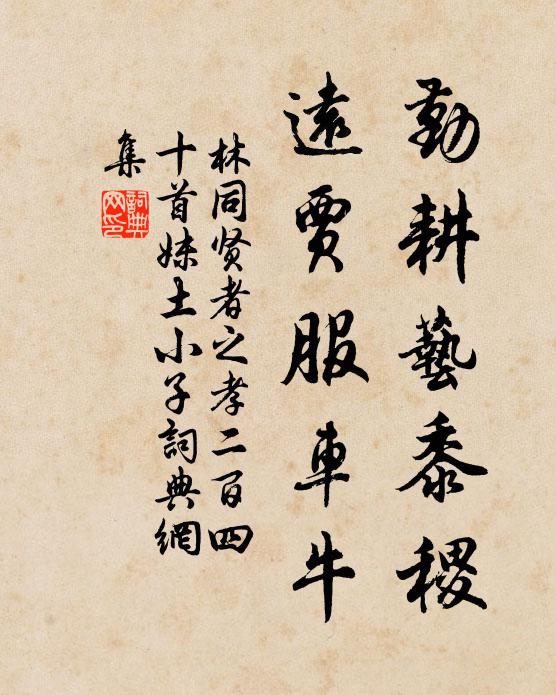 勤耕藝黍稷
遠賈服車牛
林同贤者之孝二百四
十首妹土小子詞典網
集
詞典网印